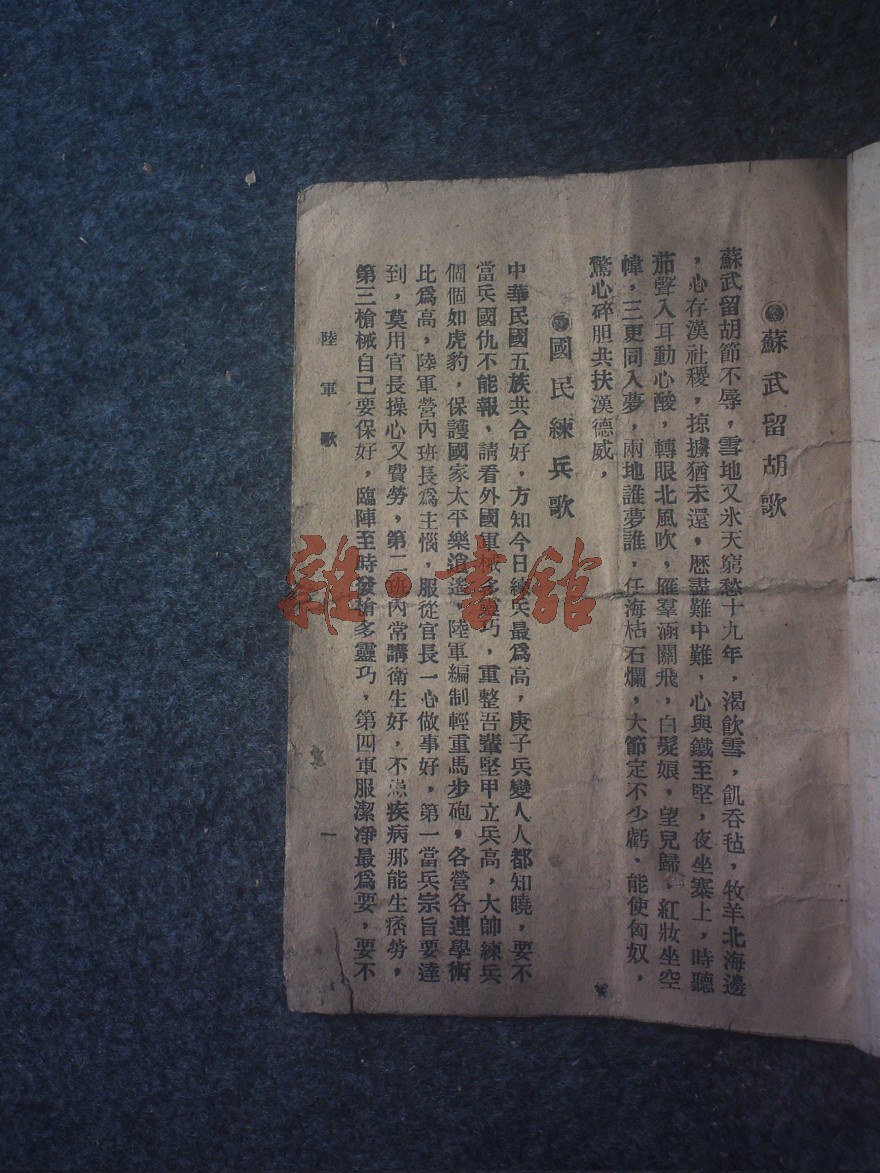 蘇武留胡歌
蘇武留胡節不辱，雪地又氷天窮愁十九年，渴飲雪，飢吞毡，牧羊北海邊
，心存漢社稷，掠擄猶未還，歷盡難中難，心與鐵至堅，夜坐塞上，時聽
茄聲入耳動心酸，轉眼北風吹，雁羣涵關飛，白髮娘，望兒歸，紅妝坐空
幃，三更同入夢，兩地誰夢誰，任海枯石爛，大節定不少虧、能使匈奴，
驚心碎胆共扶漢德威，
國民練兵歌
中華民國五族共合好，方知今日練兵最爲高，庚子兵變人人都知曉，要不
當兵國仇不能報，請看外國軍械多靈巧，重整吾輩堅甲立兵高，大帥練兵
個個如虎豹，保護國家太平樂逍遙，陸軍編制輕重馬步砲，各營各連學術
比爲高，陸軍營內班長爲主惱，服從官長一心做事好，第一當兵宗旨要達
到，莫用官長操心又費勞，第二班內常講衛生好，不患疾病那能生痨勞，
第三槍械自己要保好，臨陣至時發槍多靈巧，第四軍服潔凈最爲要，要不
陸軍歌
一
雜·書館